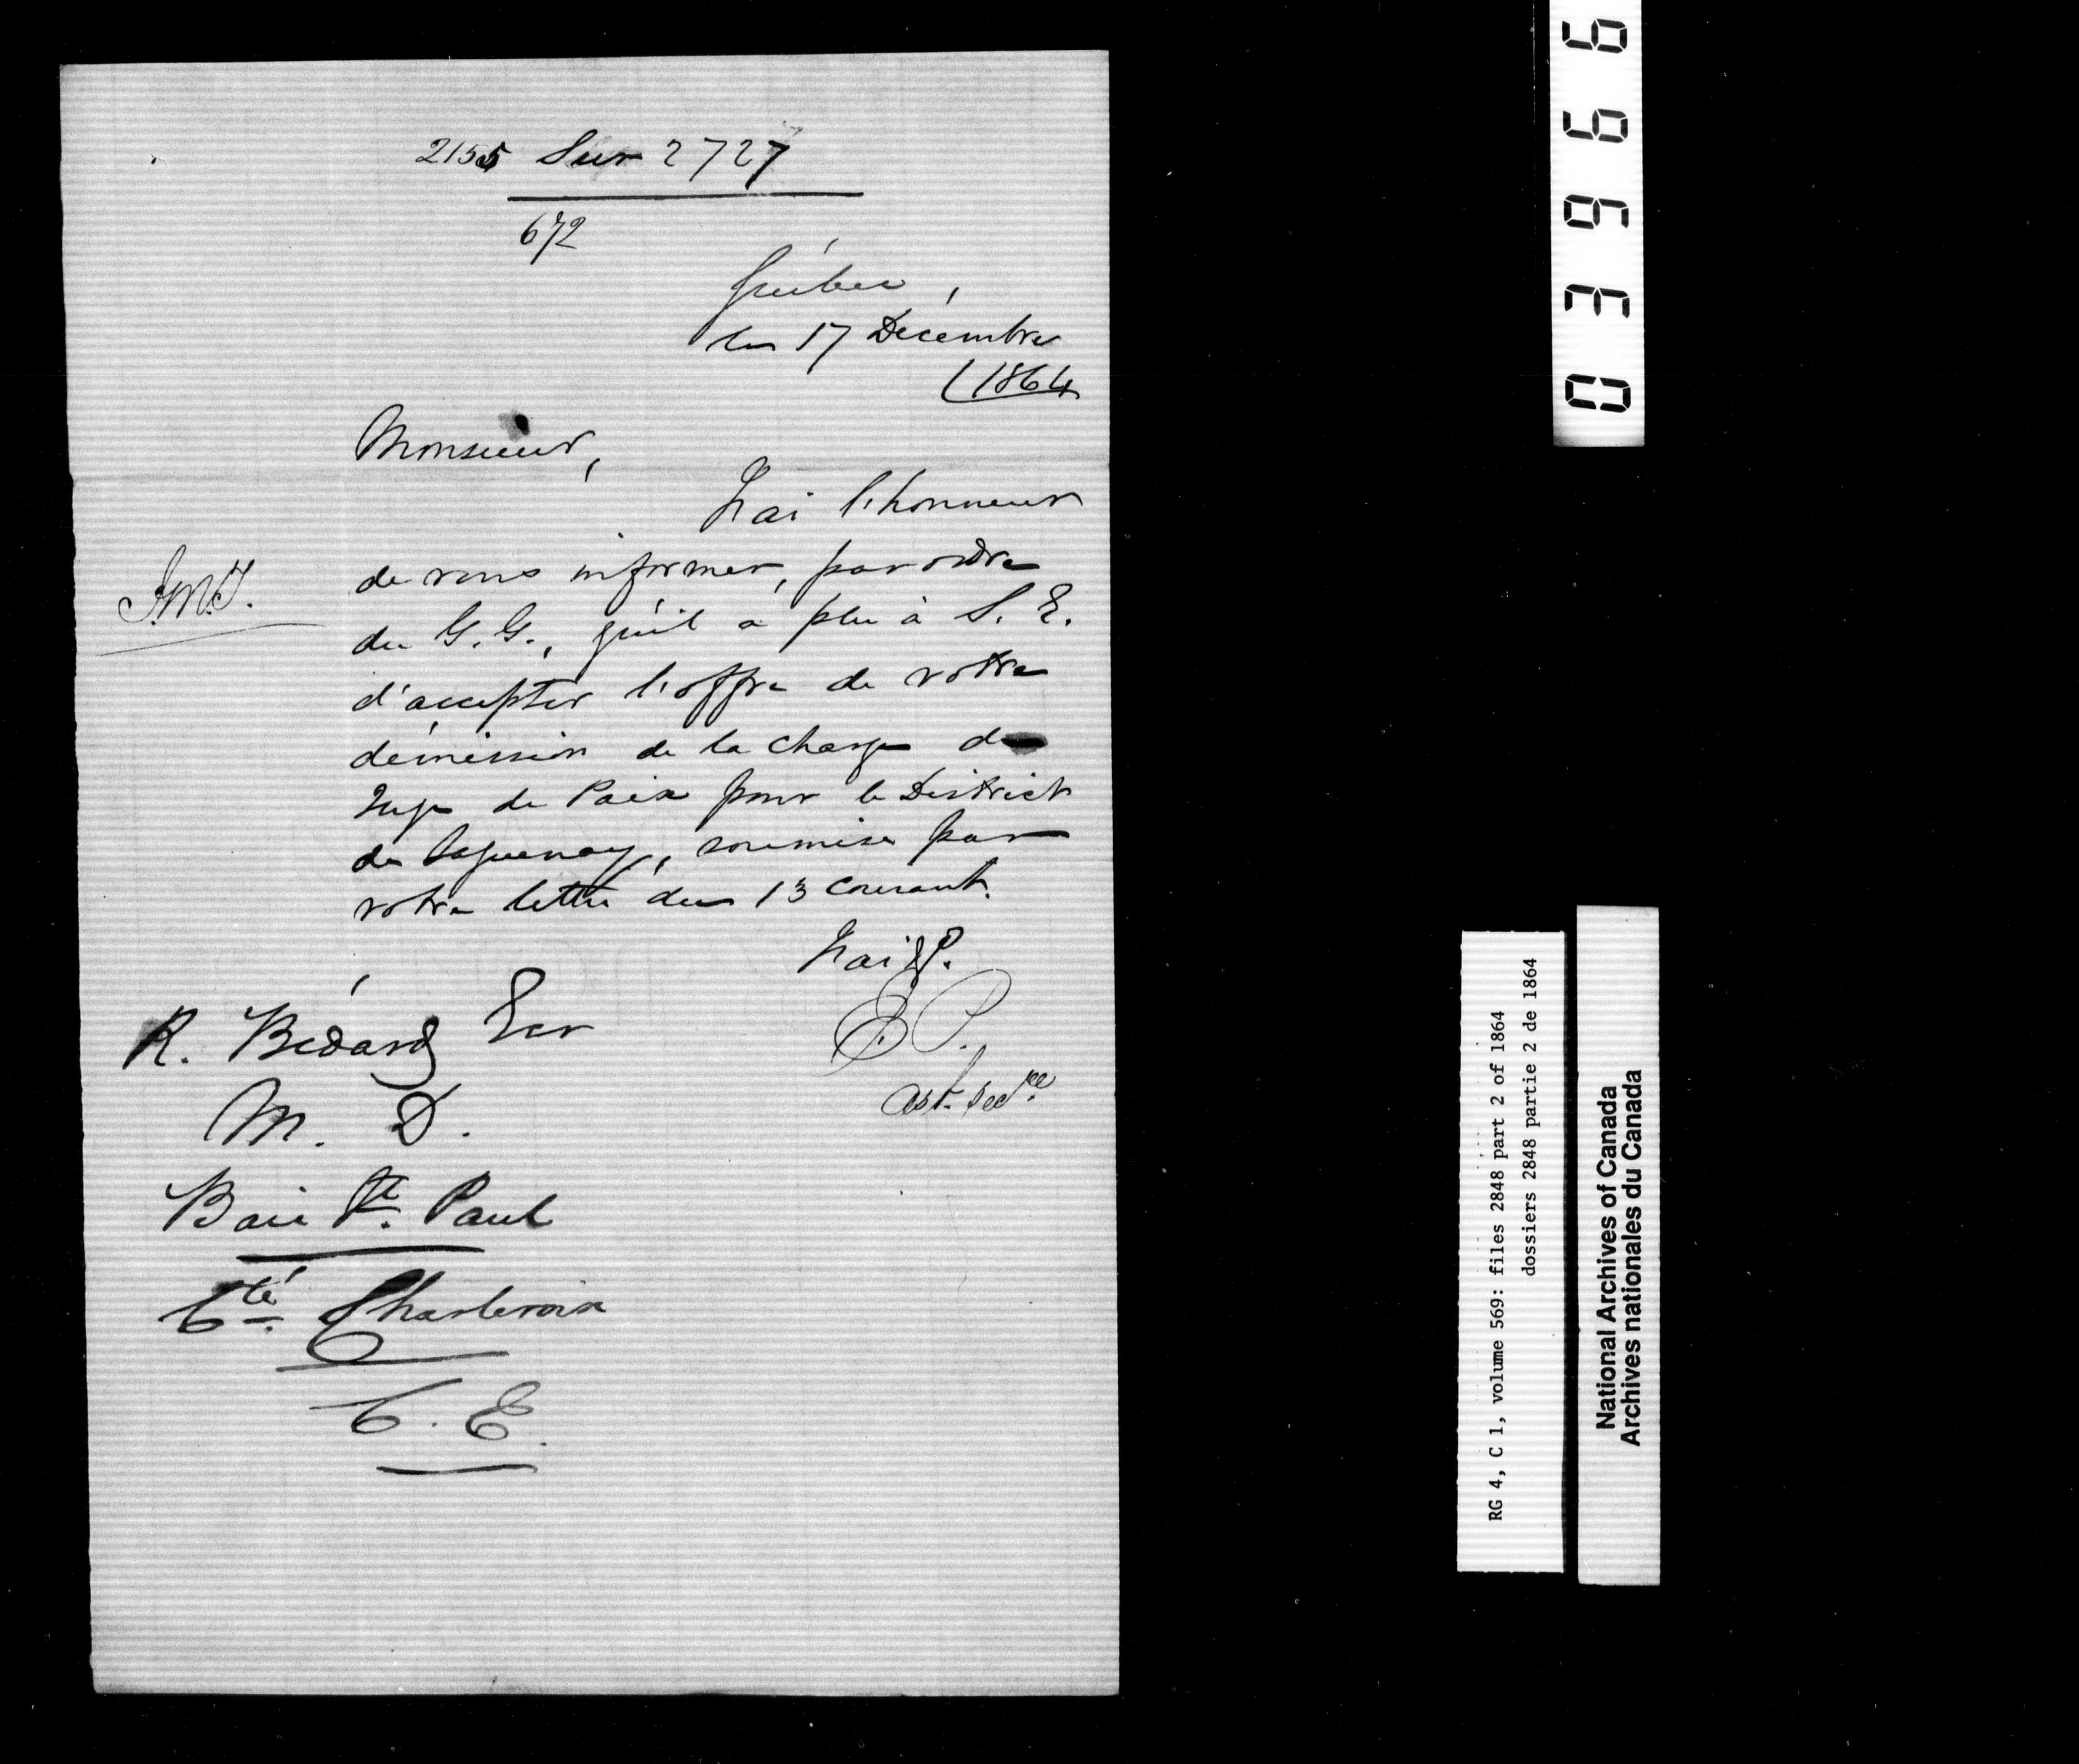 2155 Sur 2727
672
Québec,
le 17 Décembre
1864
Monsieur,
J'ai l'honneur
de vous informer, par ordre
du G. G., qu'il a plu à S. E.
d'accepter l'offre de votre
démission de la charge de
Juge de Paix pour le District
de Saguenay, soumise par
votre lettre du 13 courant.
J'ai &c.
E. P.
Asst. Secre.
R. Bédard Ecr
M. D.
Baie St. Paul
Cté. Charlevoix
C. E.
03966
RG 4, C 1, volume 569: files 2848 part 2 of 1864
dossiers 2848 partie 2 de 1864
National Archives of Canada
Archives nationales du Canada